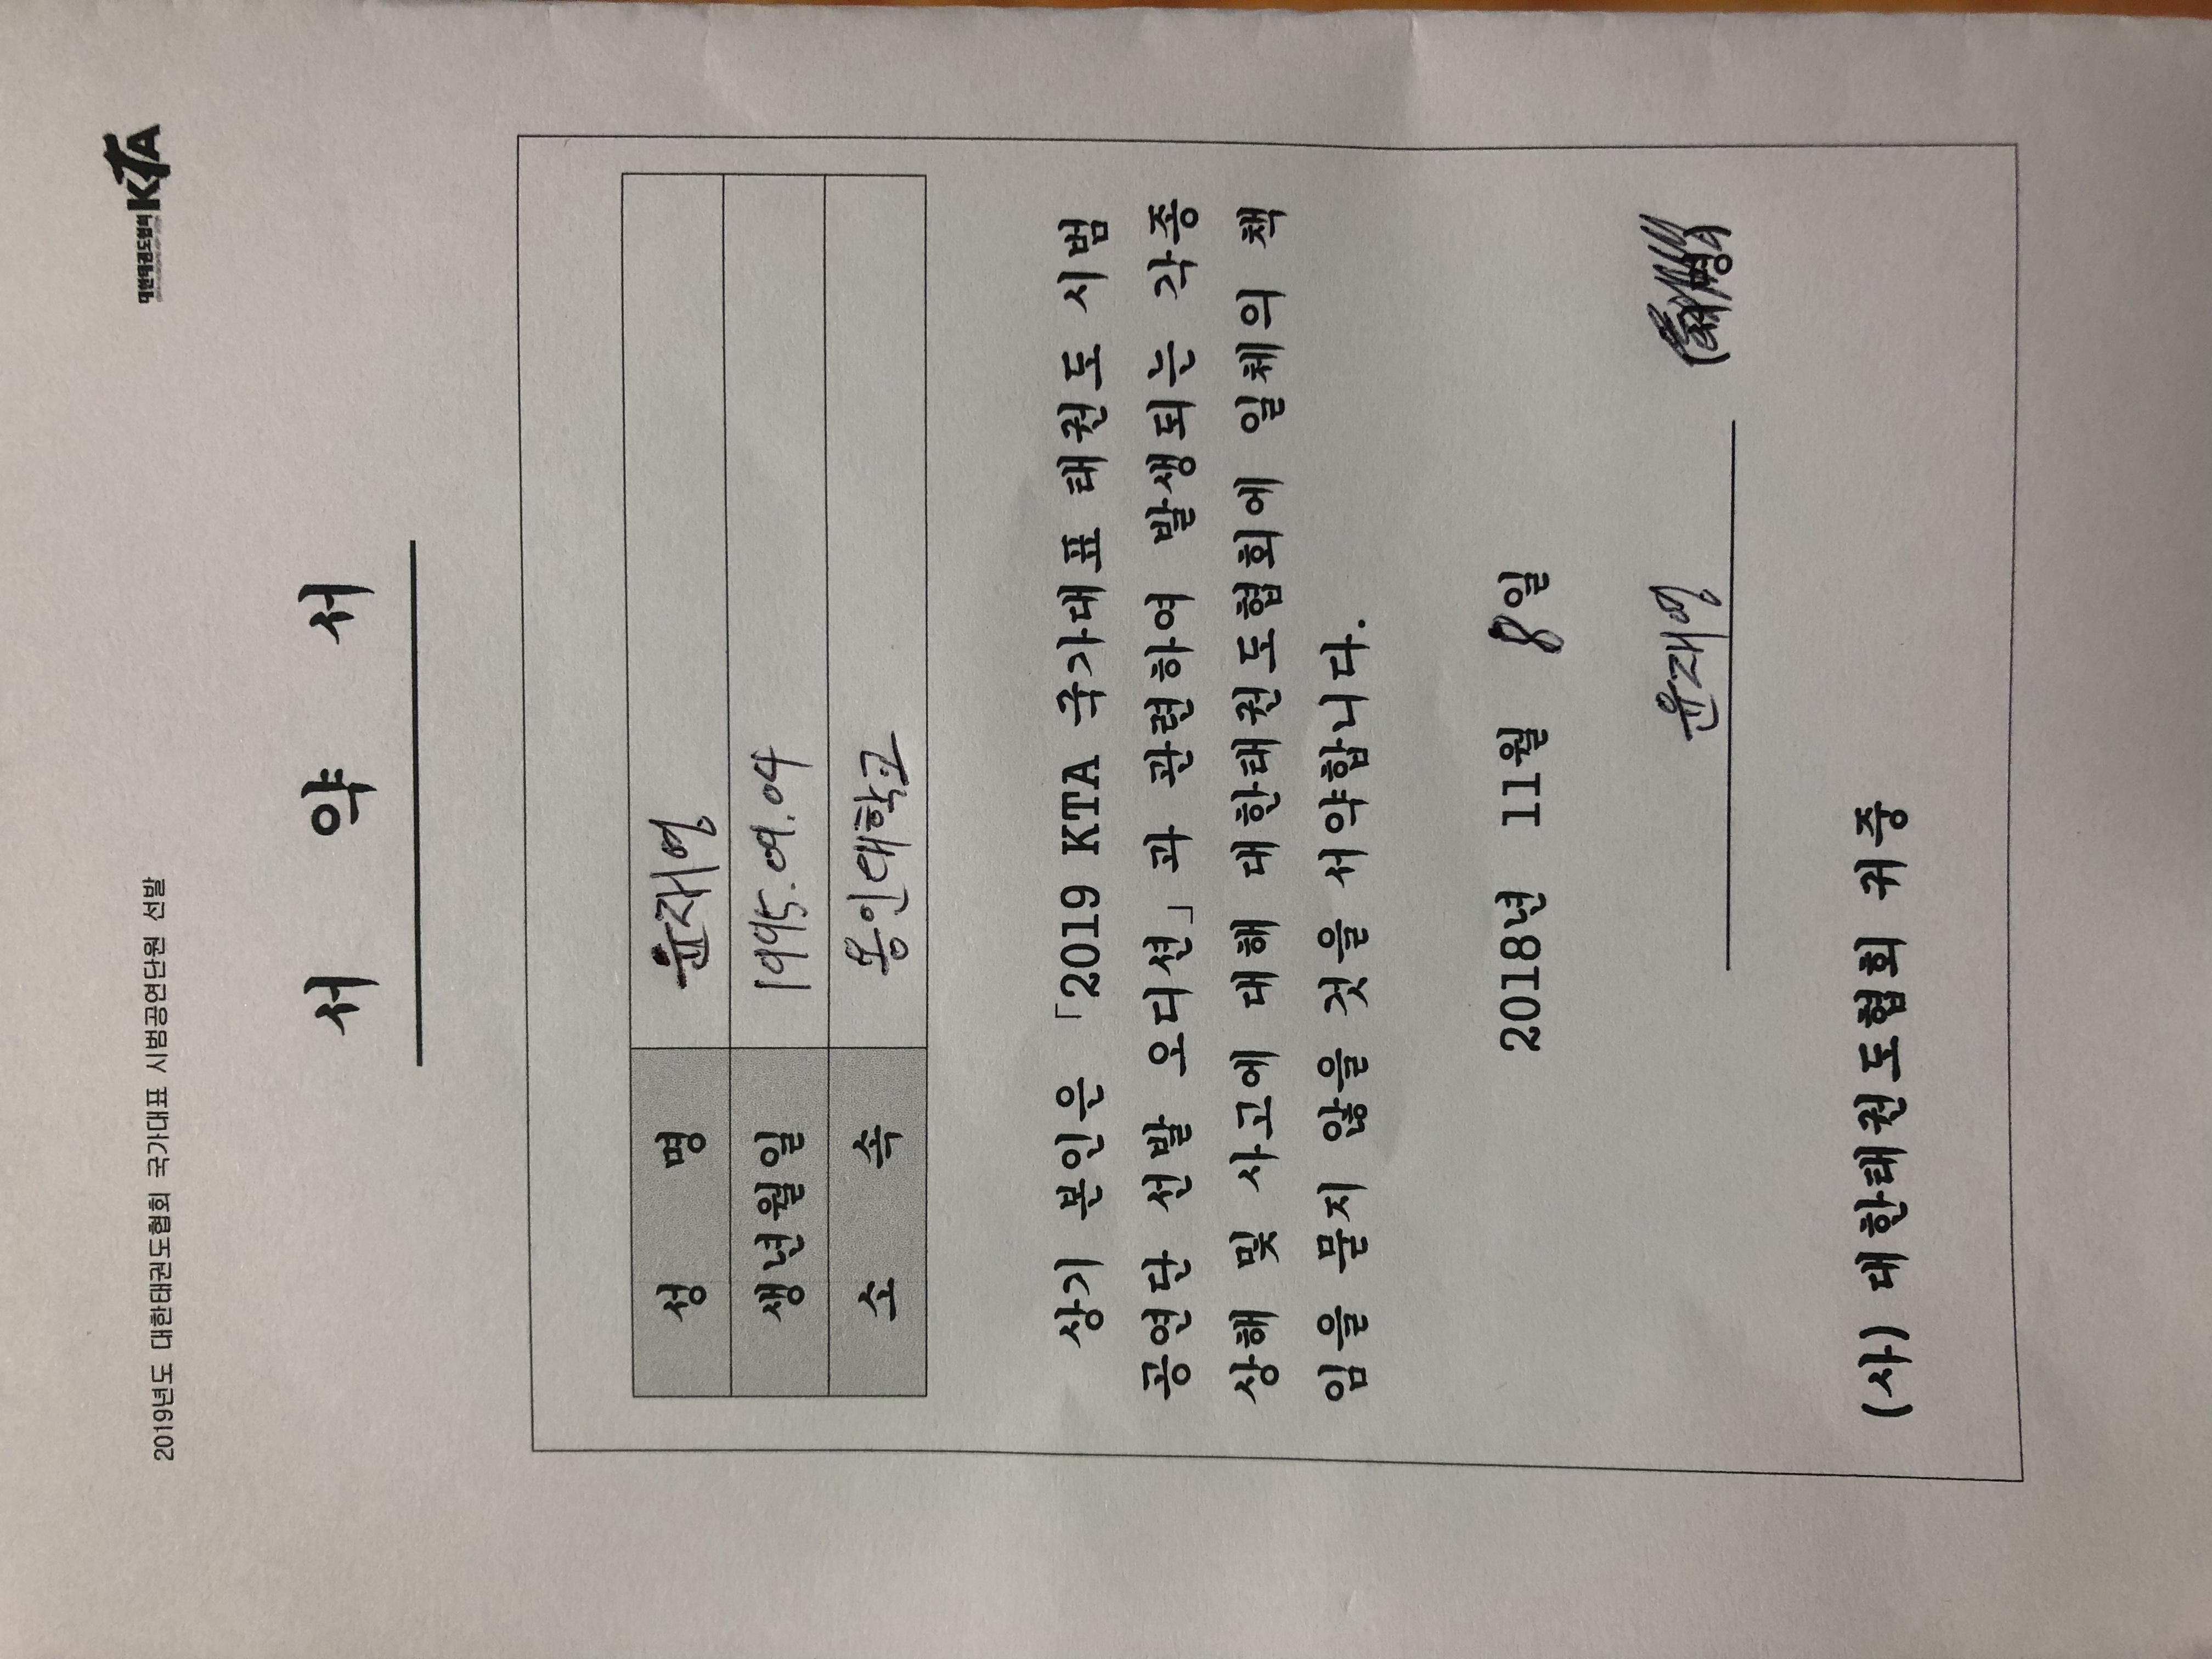 2019년도 대한태권도협회 국가대표 시범공연단원 선발
대한태권도협회 KTA
서 약 서
성 명 윤재영
생년월일 1995.09.04
소 속 용인대학교
상기 본인은 「2019 KTA 국가대표 태권도 시범
공연단 선발 오디션」과 관련하여 발생되는 각종
상해 및 사고에 대해 대한태권도협회에 일체의 책
임을 묻지 않을 것을 서약합니다.
2018년 11월 8일
윤재영 (서명)
(사) 대한태권도협회 귀중